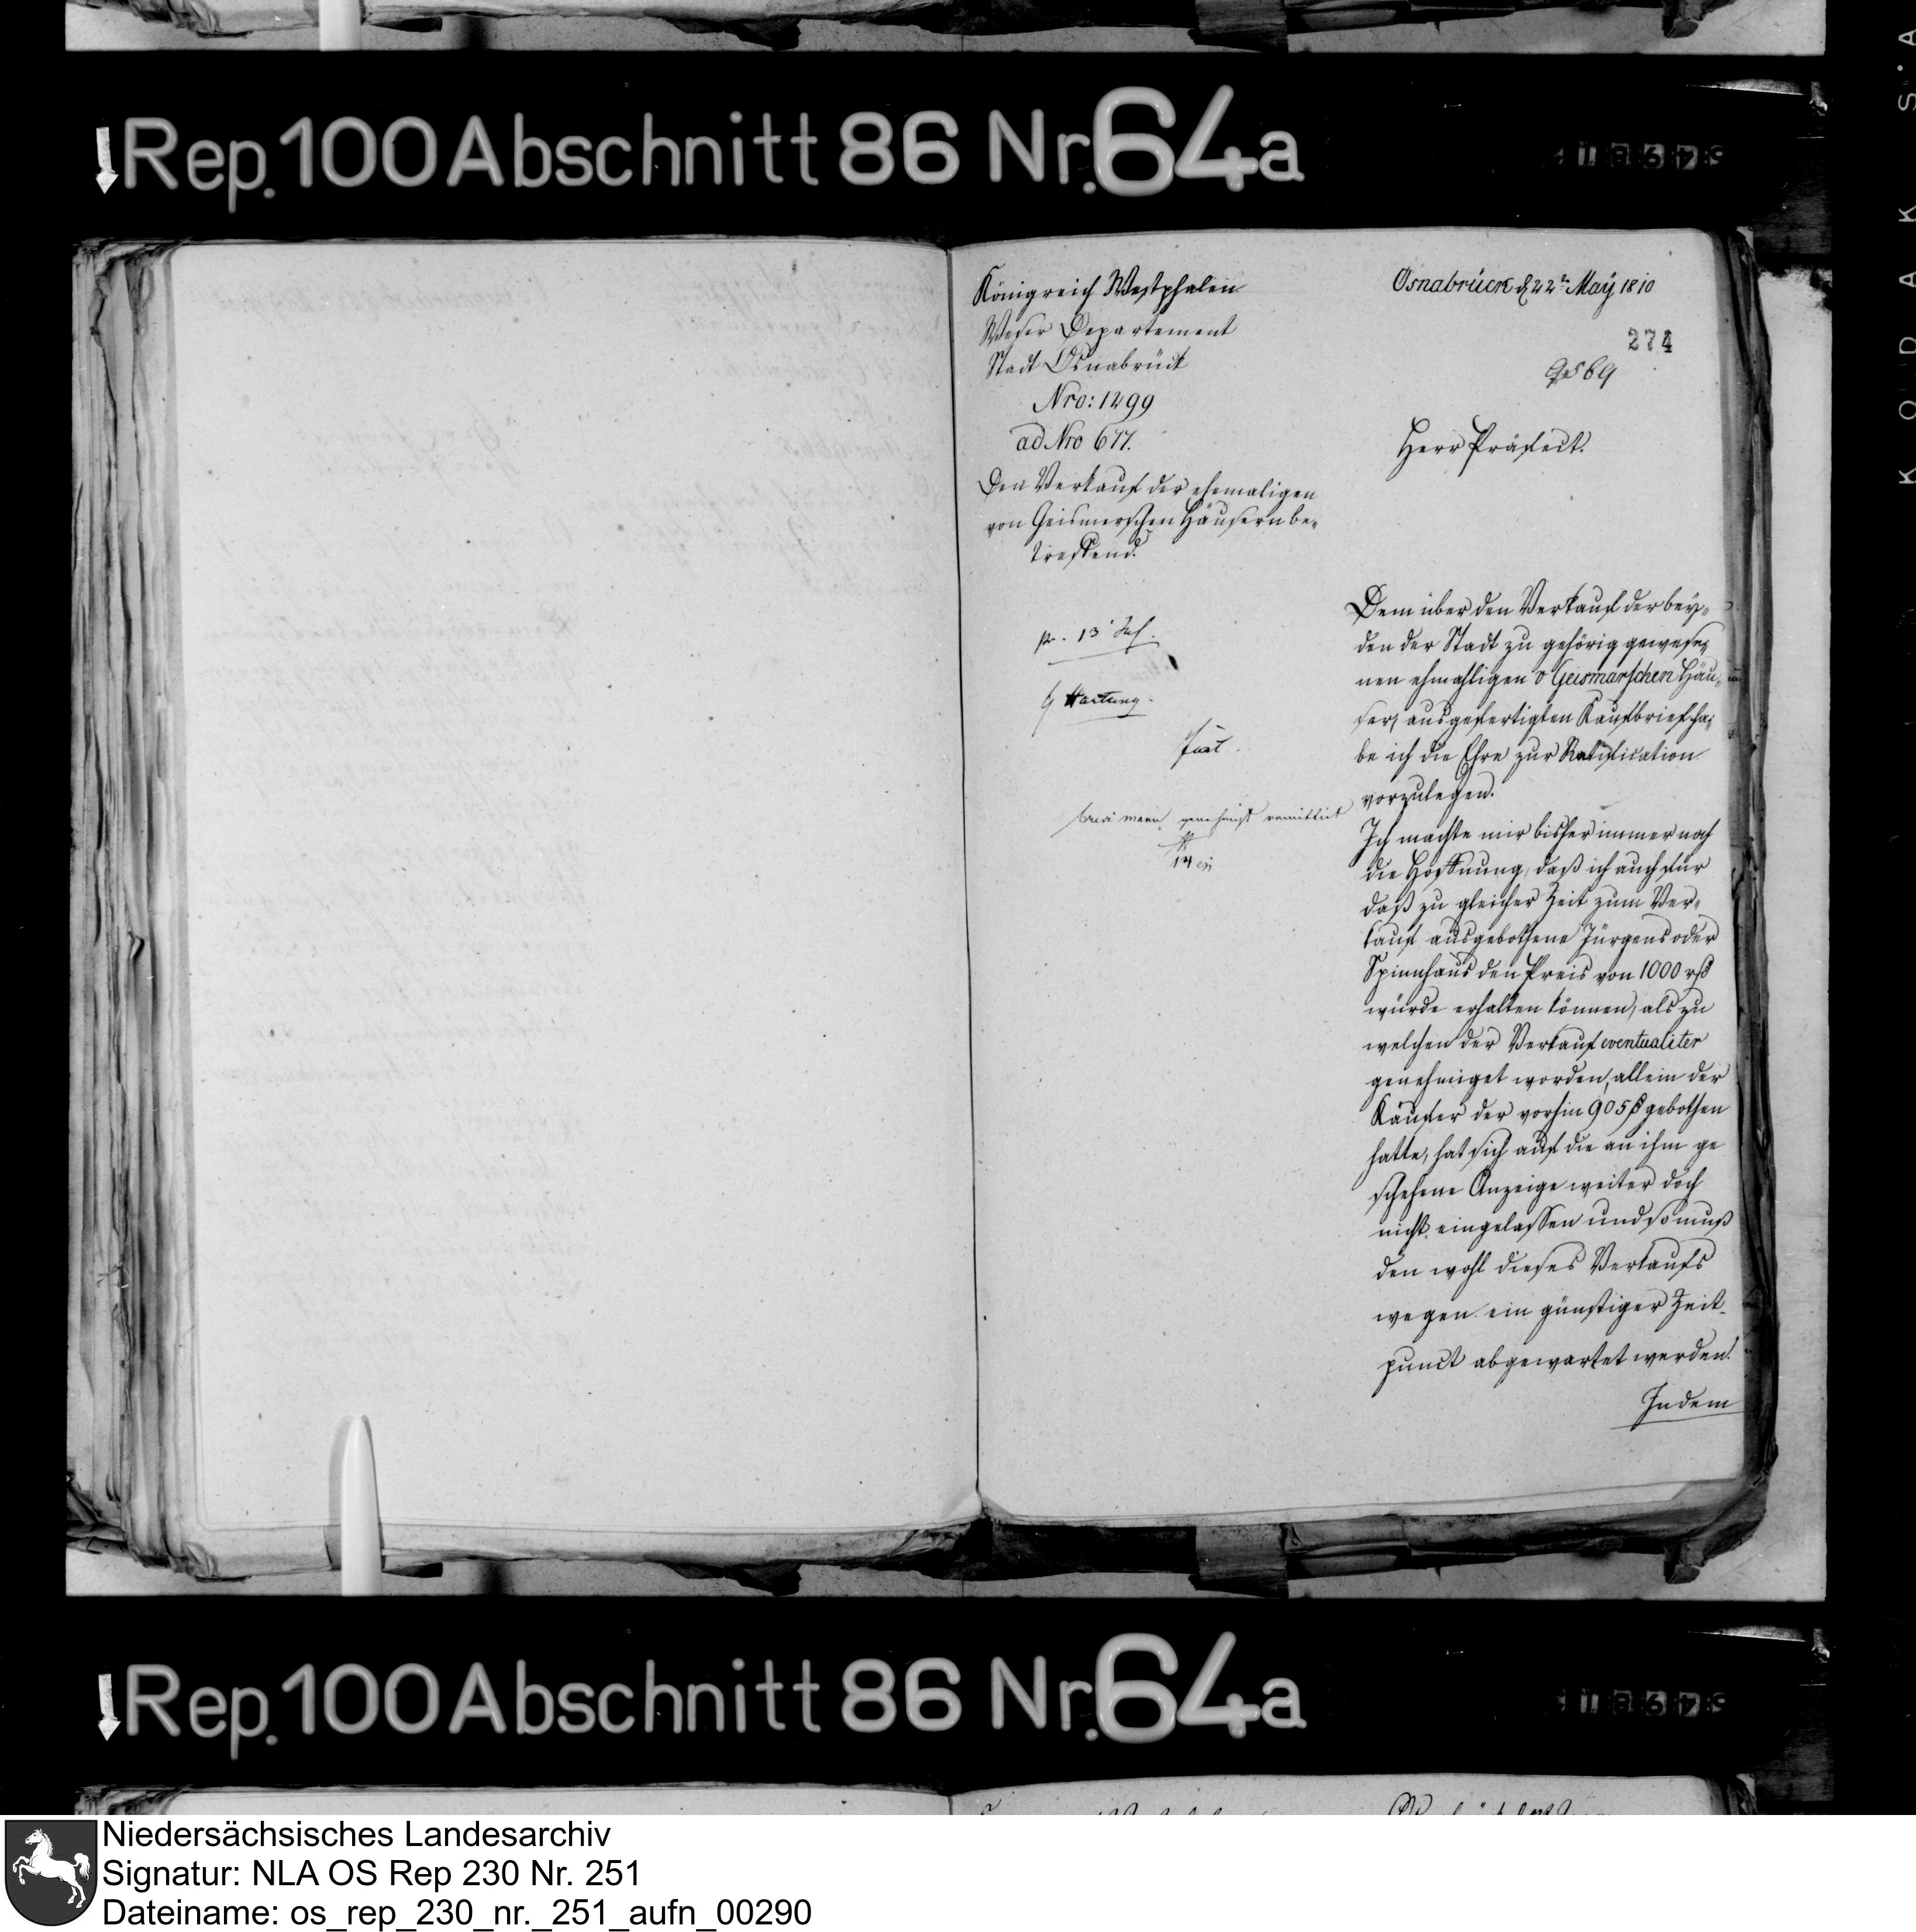 Rep. 100 Abschnitt 86 Nr. 64a
Königreich Westphalen
Weser Departement
Stadt Osnabrück
Nro: 1299
ad Nro 677.
Den Verkauf der ehemaligen
von Geismerschen Häusern be-
treffend.
Osnabrück d 22t May 1810
274
Herr Präfect.
Dem über den Verkauf der bey-
den der Stadt zu gehörig gewese-
nen ehmahligen v Geismarschen Häu-
ser, ausgefertigten Kaufbrief ha-
be ich die Ehre zur Ratification
vorzulegen.
Ich machte mir bisher immer noch
die Hoffnung, daß ich auch für
daß zu gleicher Zeit zum Ver-
kauf ausgebothene Jürgens oder
Spinnhaus den Preis von 1000 rß
würde erhalten können, als zu
welchen der Verkauf eventualiter
genehmiget worden, allein der
Käufer der vorhin 905 ß gebothen
hatte, hat sich auf die an ihm ge
schehene Anzeige weiter doch
nicht eingelassen und so muß
den wohl dieses Verkaufs
wegen ein günstiger Zeit-
punct abgewartet werden.
Indem
p. 13
Hartung.
fiat.
remittirt
Rep. 100 Abschnitt 86 Nr. 64a
KODAK S.A
Niedersächsisches Landesarchiv
Signatur: NLA OS Rep 230 Nr. 251
Dateiname: os_rep_230_nr._251_aufn_00290